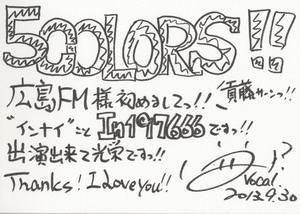 5COLORS!!
広島FM様初めましてっ!! 須藤サーンっ!!
"インナイ"こと In197666ですっ!!
出演出来て光栄ですっ!!
Thanks! I Love you!!
Vocal.
2013.9.30